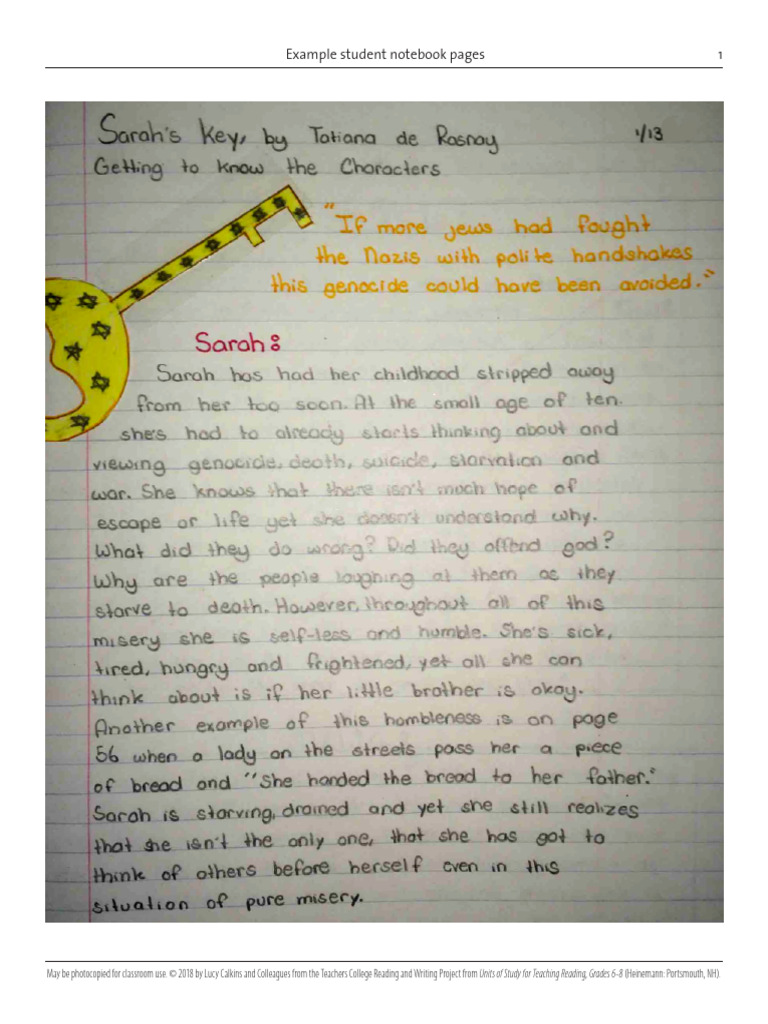 Example student notebook pages
1
Sarah's Key, by Tatiana de Rosnay
1/13
Getting to know the Characters
"If more jews had fought
the Nazis with polite handshakes
this genocide could have been avoided."
Sarah:
Sarah has had her childhood stripped away
from her too soon. At the small age of ten.
she's had to already starts thinking about and
viewing genocide, death, suicide, starvation and
war. She knows that there isn't much hope of
escape or life yet she doesn't understand why.
What did they do wrong? Did they offend god?
Why are the people laughing at them as they
starve to death. However, throughout all of this
misery she is self-less and humble. She's sick,
tired, hungry and frightened, yet all she can
think about is if her little brother is okay.
Another example of this humbleness is on page
56 when a lady on the streets pass her a piece
of bread and "She handed the bread to her father."
Sarah is starving, drained and yet she still realizes
that she isn't the only one, that she has got to
think of others before herself even in this
situation of pure misery.
May be photocopied for classroom use. © 2018 by Lucy Calkins and Colleagues from the Teachers College Reading and Writing Project from Units of Study for Teaching Reading, Grades 6–8 (Heinemann: Portsmouth, NH).